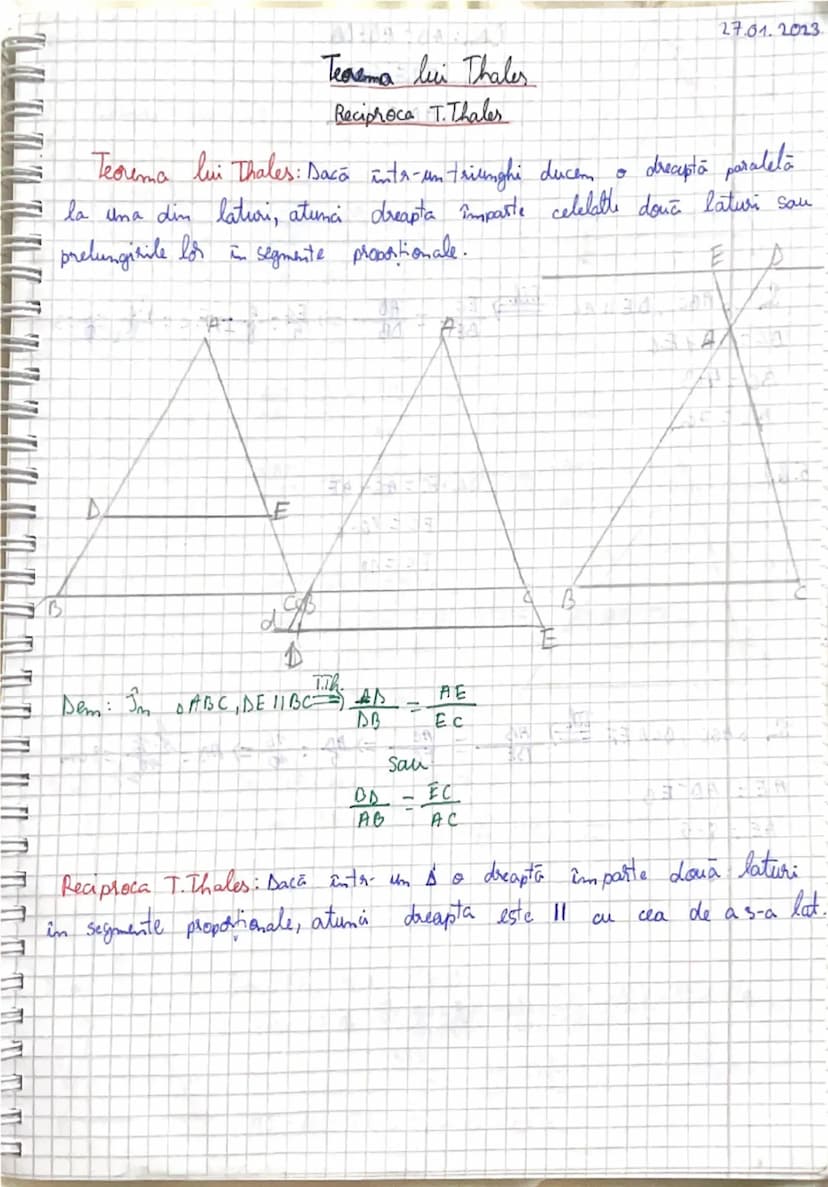 27.01.2023
Teorema lui Thales
Reciproca T.Thales
Teorema lui Thales: Dacă într-un triunghi ducem o dreaptă paralelă
la una din laturi, atunci dreapta împarte celelalte două laturi sau
prelungirile lor în segmente proporționale.
E D
A A A
D E
B C B C B C
d E
D
Dem: În △ABC, DE || BC =T.Th.=> AD/DB = AE/EC
sau
BD/AB = EC/AC
Reciproca T.Thales: Dacă într-un Δ o dreaptă împarte două laturi
în segmente proporționale, atunci dreapta este || cu cea de a 3-a lat.